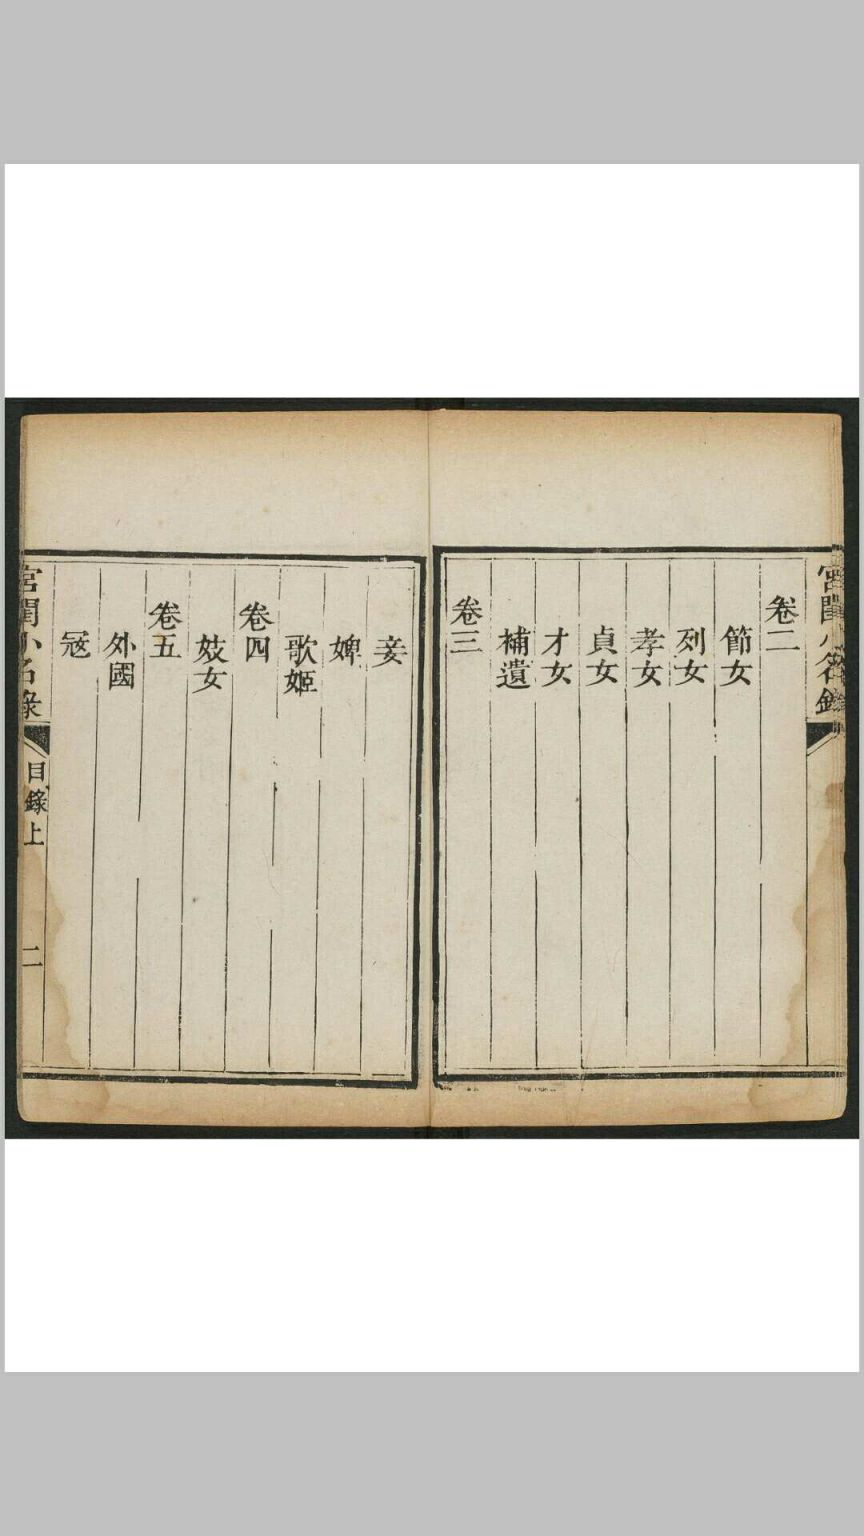 宮閨小名錄
卷二
節女
列女
孝女
貞女
才女
補遺
卷三
妾
婢
歌姬
卷四
妓女
卷五
外國
冦
宮閨小名錄
目錄上
二